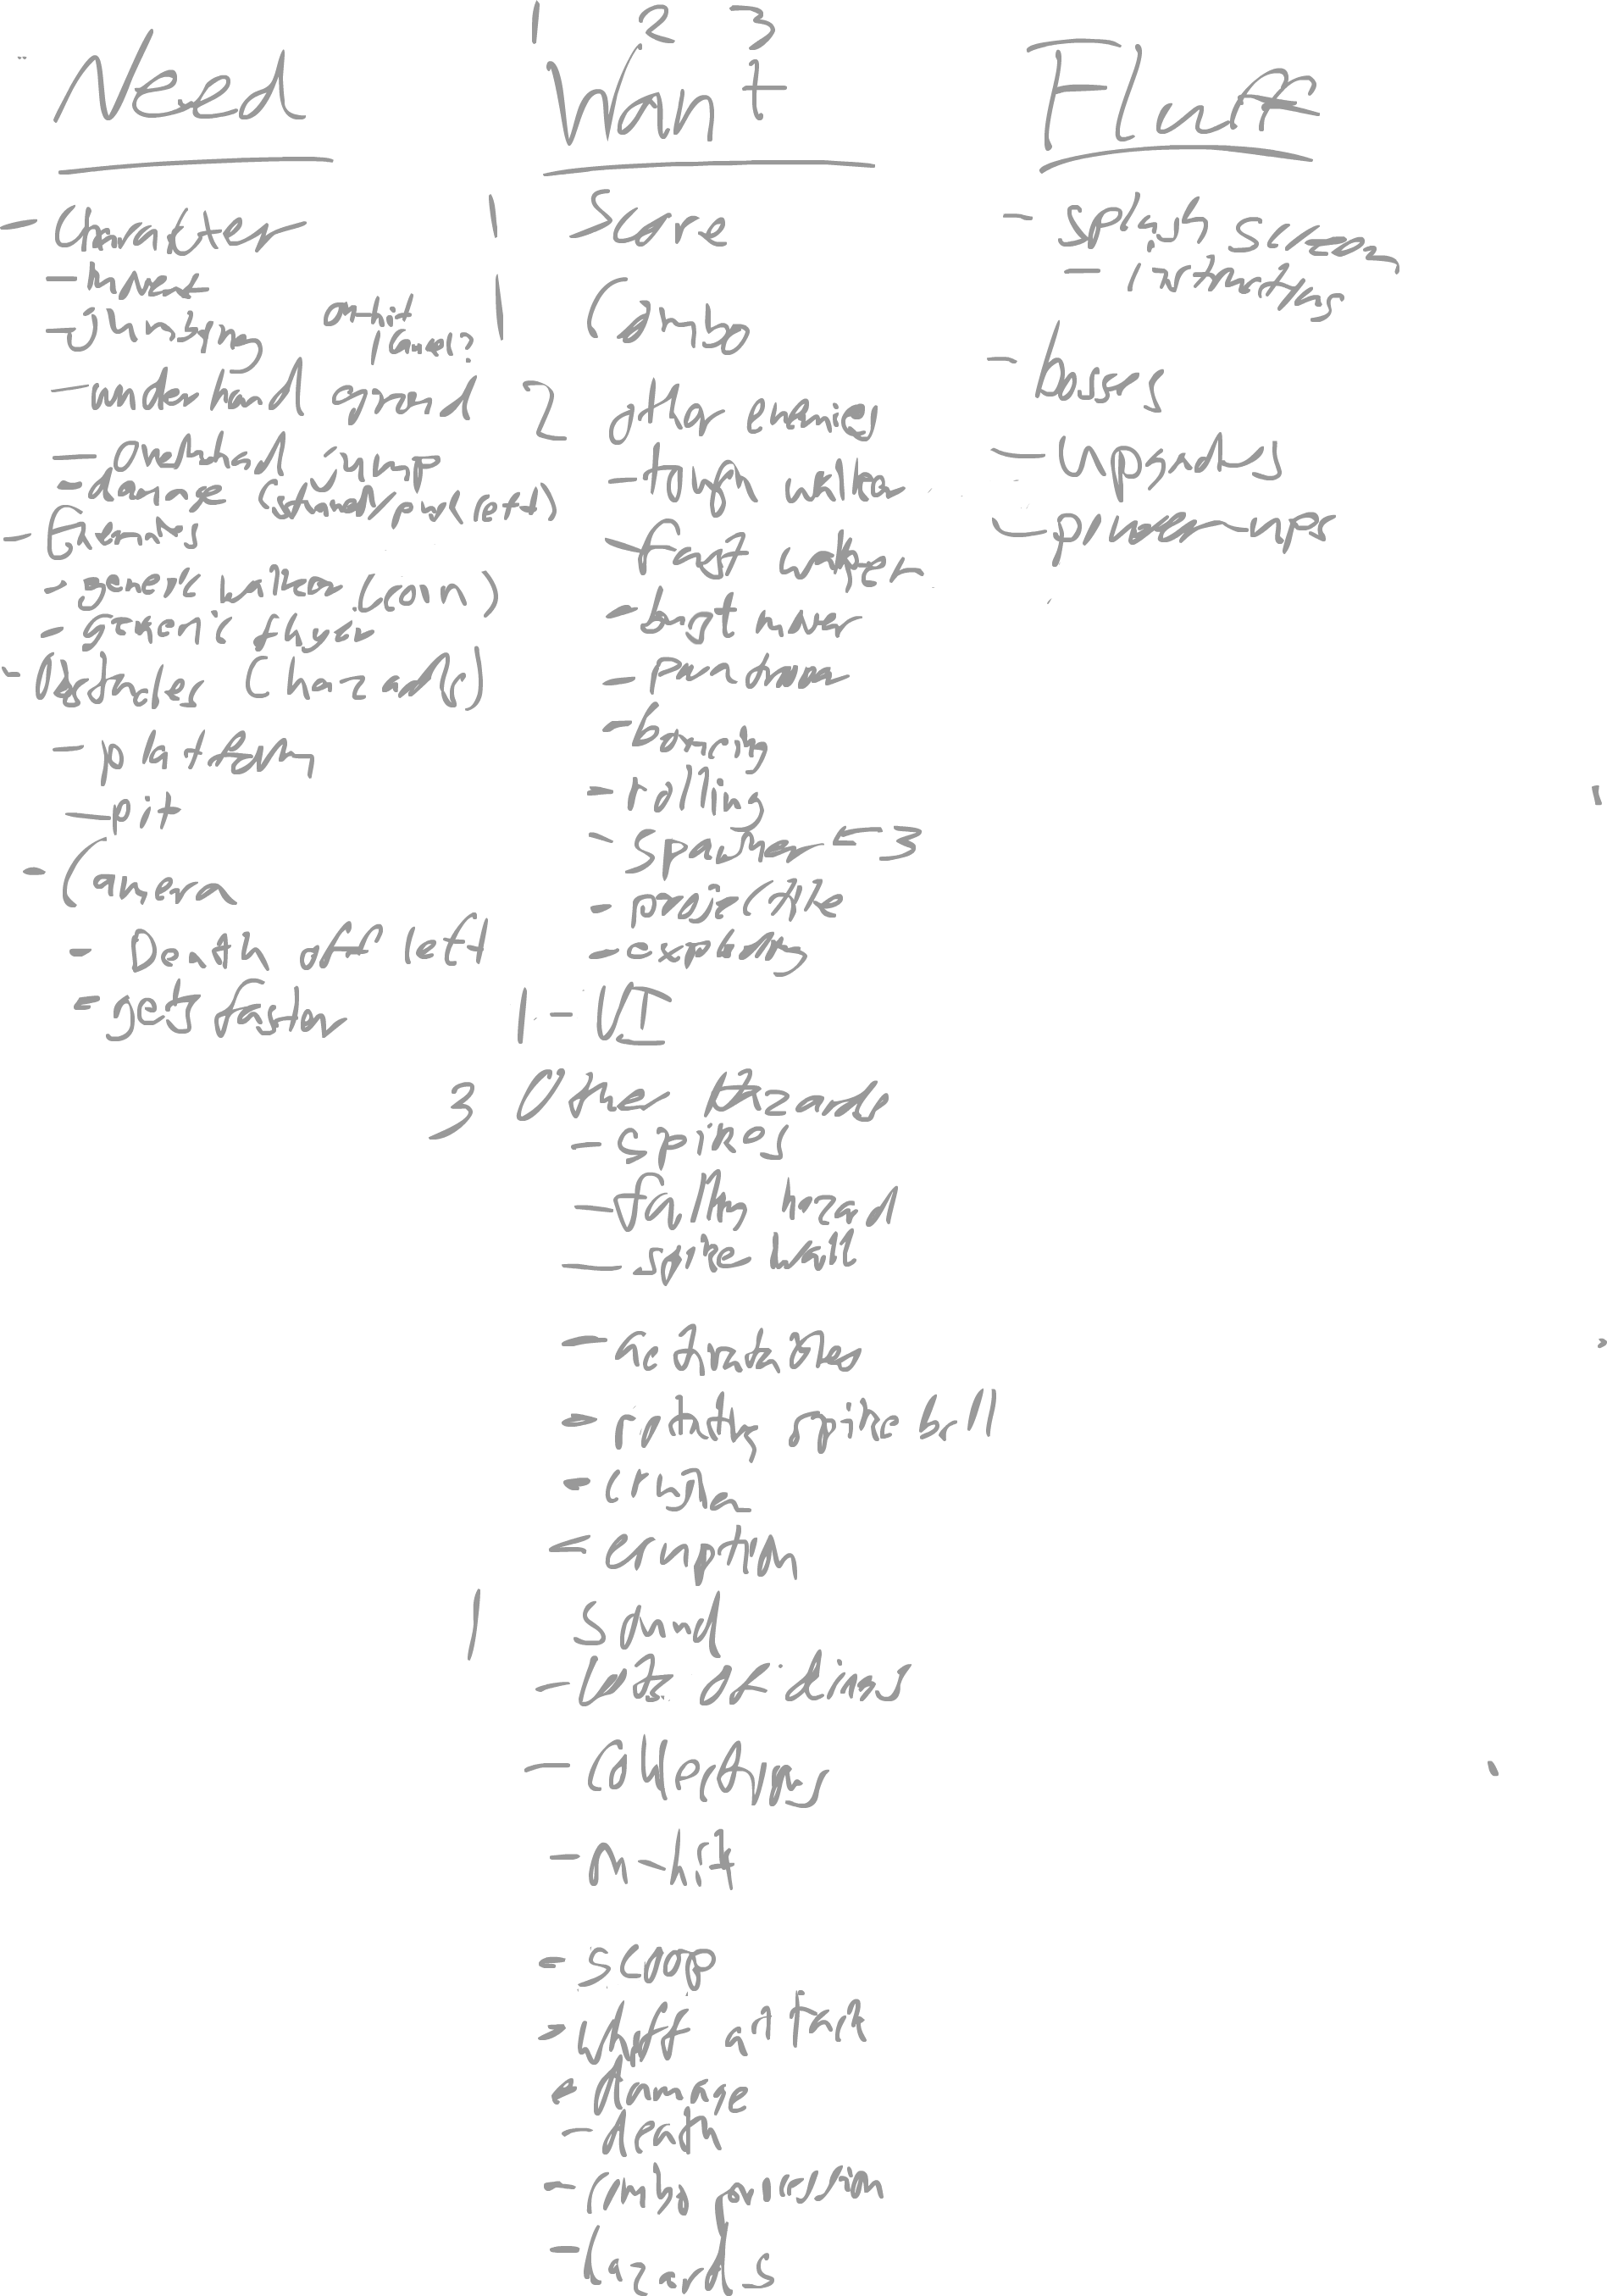 1 2 3
Need
- Character
- invest
- jumping
on hit
- underhand ground
- overhead jump
- damage (small/pushback left)
- Enemies
- generic walker (coon)
- generic flyer
- Obstacles (hazards)
- platform
- pit
- Camera
- Death off left
- gets faster
Want
1 Score
1 Combo
2 other enemies
- tough walker
- fast walker
- burst mover
- bouncing
- rolling
- spawner - 3
- projectile
- exploding
1 - UI
3 Other Hazards
- spikes
- falling hazard
- spike wall
- rotating spike ball
- crusher
- eruption
1 Sound
- lots of dings
- Collecting
- on-hit
- scoop
- whiff attack
- damage
- death
- Combo
- hazards
Fluff
- splash screen
- bosses
- upgrades
- power-ups